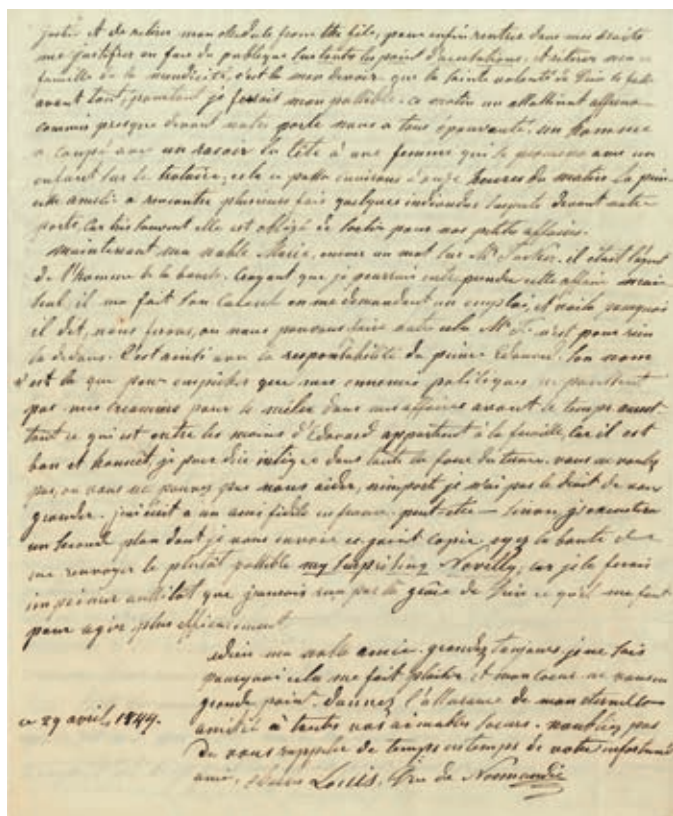 justice et de retirer mon obedute from the bile, pour enfin rentrer dans mes droits
me justifier en face du publique sur touts les point d'accusations. et retirer ma
famille de la mendicité, c'est la mon devoir que la sainte volonté de Dieu se fasse
avant tout, pourtant je ferrait mon possible. ce matin un assassinat affreux
commis presque devant notre porte nous a tous épouvanté. un homme
a coupé avec un rasoir la tête à une femme qui se promena avec un
enfant sur le trotoire, cela ce passa environs d'onze heures du matin. la
a rencontré plusieurs fois quelques individus suspects devant notre
porte, car bien souvent elle est obligé de sortir pour nos petits affaires.
maintenant ma noble Marie, encore un mot sur Mr. il était l'agent
de l'homme de la bourse. Croyant que je pourrai entreprendre cette affaire
seul, il me fait son en me demandant un emploi, et voila pourquoi
il dit, nous ferons, ou nous pouvons faire cela Mr. n'est pour rien
la dedans. C'est ainsi avec la responsabilité du prince Edouard. Son nom
n'est la que pour empêcher que mes ennemis politiques ne
pas mes pour se mêler dans mes affaires avant le temps.
tout ce qui est entre les mains d'Edouard appartient à la famille, car il est
bon et honnet, je puis dire intègre dans toute la force du terme. vous ne voulez
pas, ou vous ne pouvez pas nous aider, n'importe je n'ai pas le droit de vous
gronder. j'ai écrit a un ami fidele en france. peut-etre — sinon j'executerai
un second plan dont je vous envoie ci-joint copie. ayez la bonté de
me renvoyer le plutôt possible my Surprising Novelty, car je le ferais
imprimer aussitôt que j'aurais reçu par la grâce de Dieu ce qu'il me faut
pour agir plus efficacement
adieu ma noble amie. grondez toujours, je ne sais
pourquoi cela me fait plaisir et mon coeur ne vous en
gronde point. Donnez l'assurance de mon éternelle
amitié à toutes vos aimables soeurs. n'oubliez pas
de vous rappeler de temps en temps de votre infortuné
ami, Louis, Duc de Normandie
ce 29 avril, 1844.